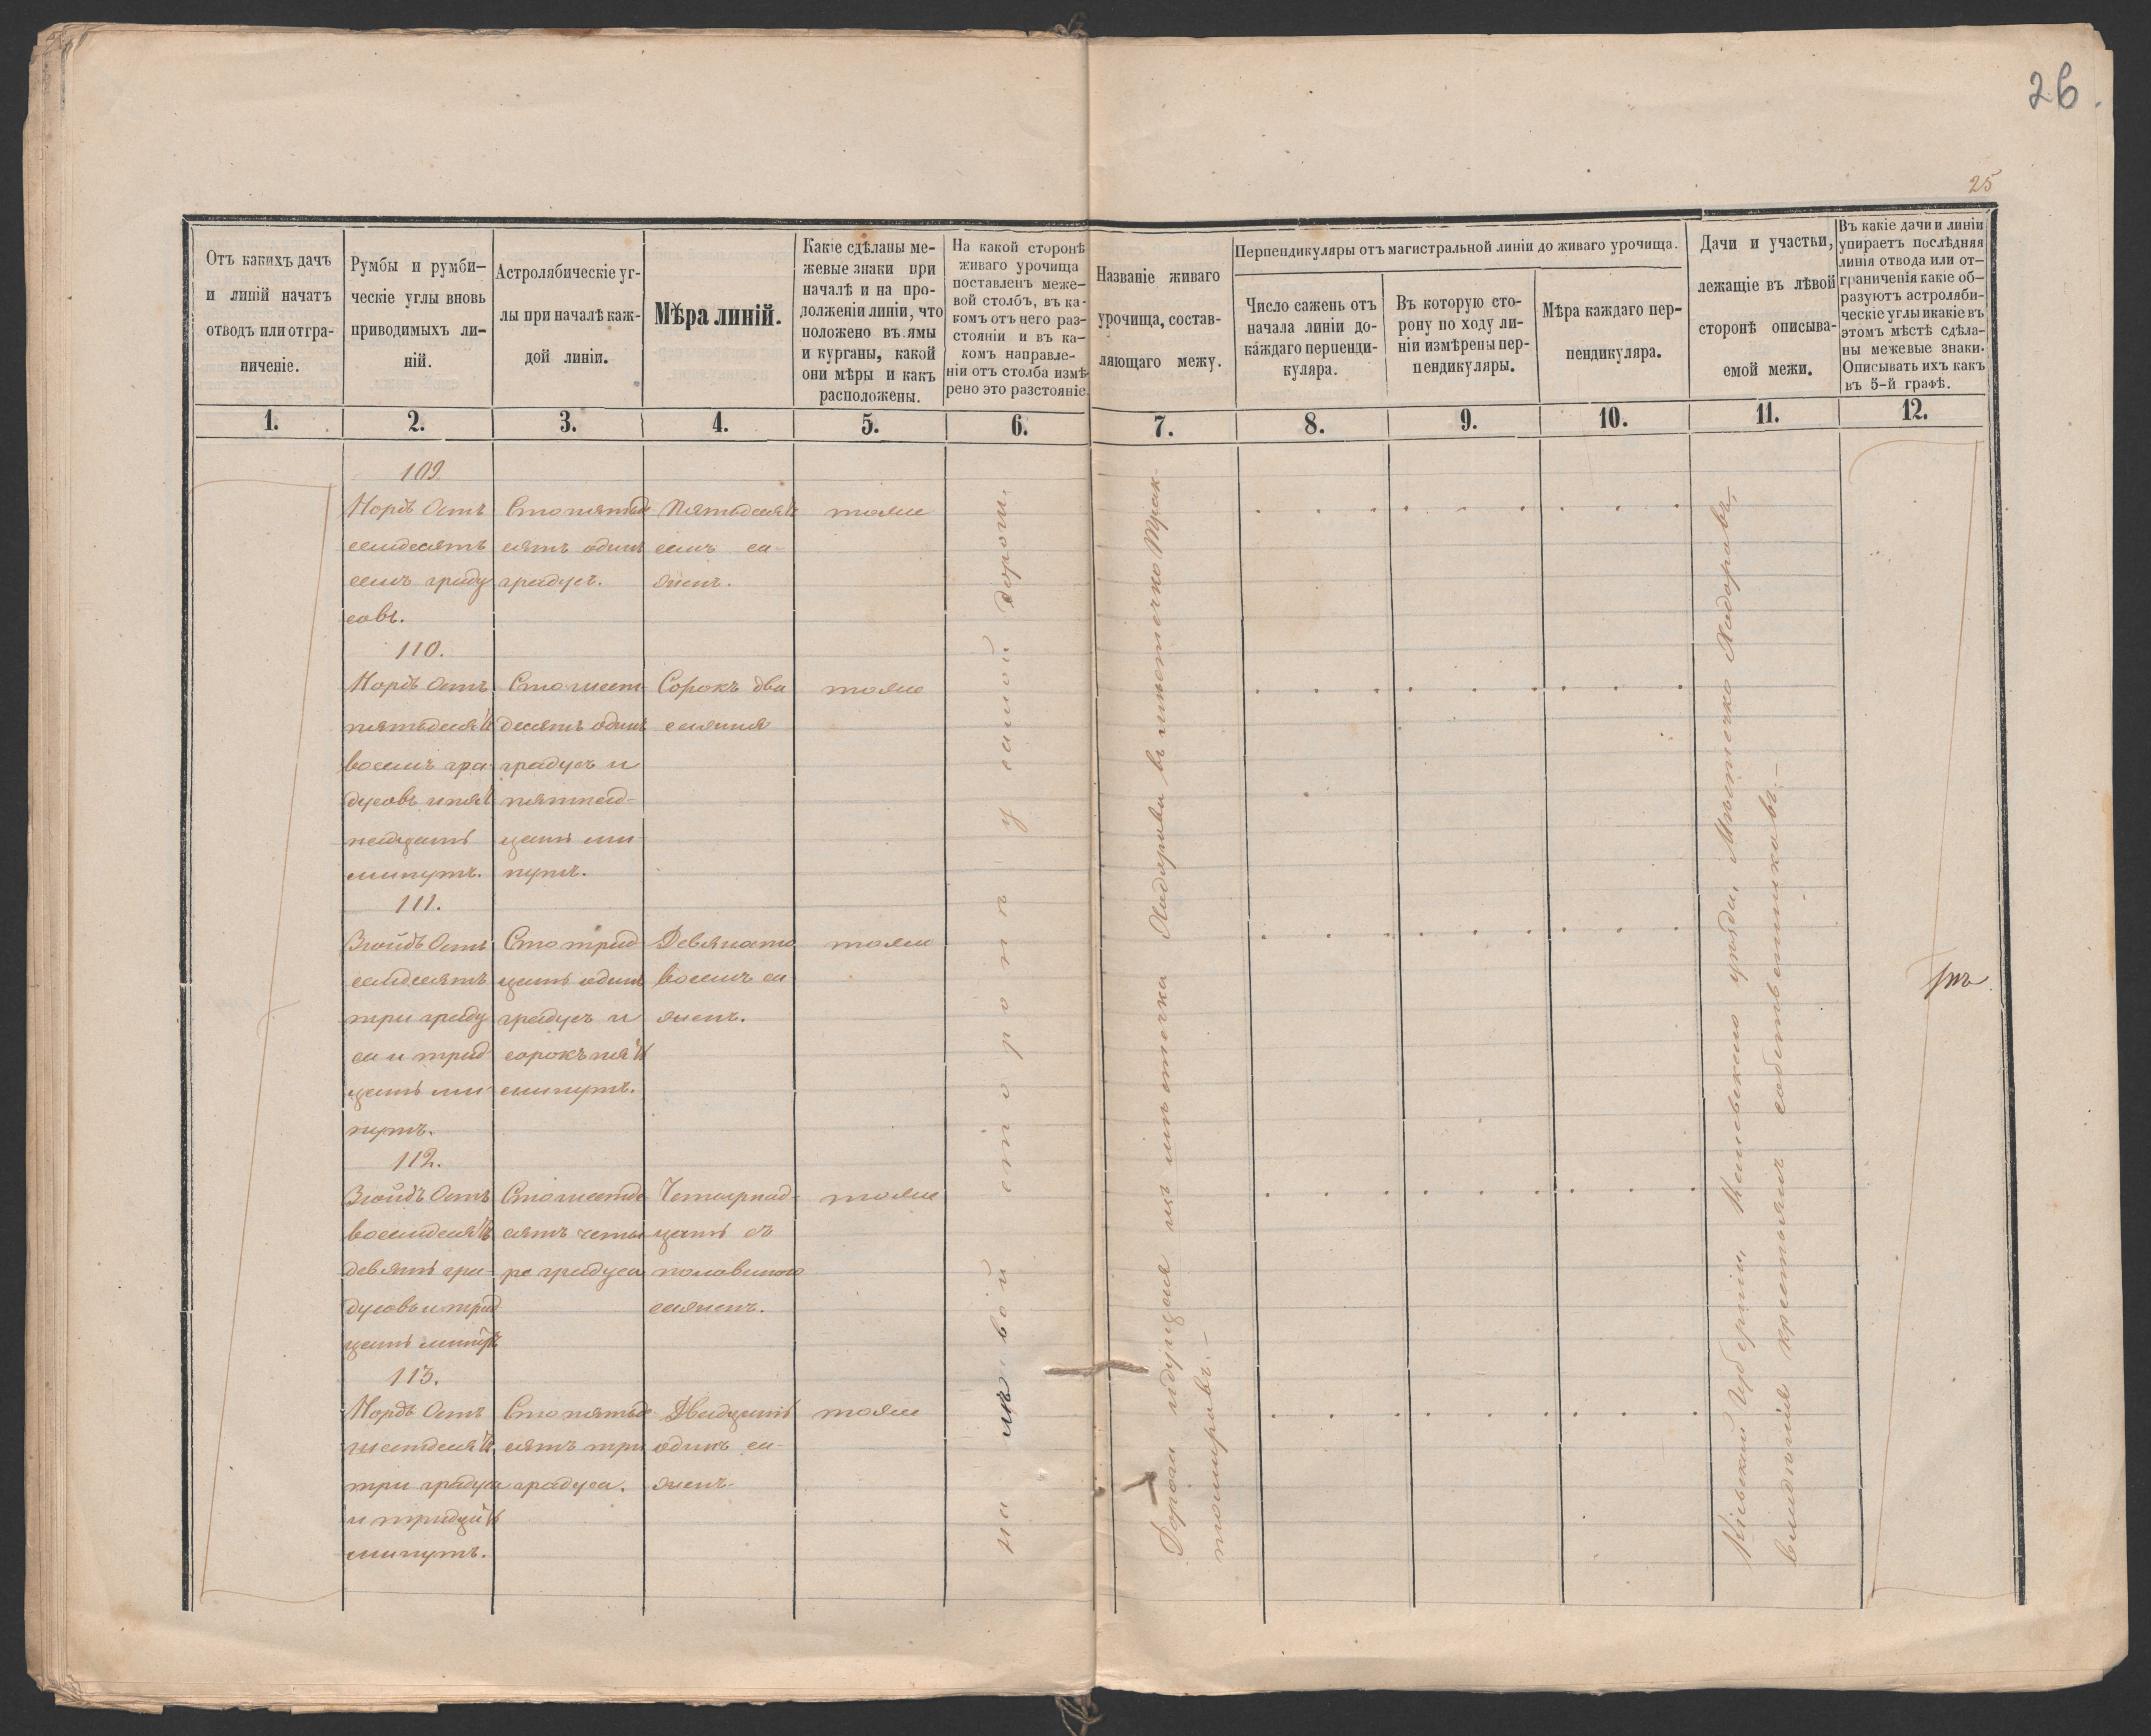 26.
25
Отъ какихъ дачъ
и линій начатъ
отводъ или отгра-
ниченіе.
Румбы и румби-
ческіе углы вновь
приводимыхъ ли-
ній.
Астролябическіе уг-
лы при началѣ каж-
дой линіи.
Мѣра линій.
Какіе сдѣланы ме-
жевые знаки при
началѣ и на про-
долженіи линіи, что
положено въ ямы
и курганы, какой
они мѣры и какъ
расположены.
На какой сторонѣ
живаго урочища
поставленъ меже-
вой столбъ, въ ка-
комъ отъ него раз-
стояніи и въ ка-
комъ направле-
ніи отъ столба измѣ-
рено это разстояніе
Названіе живаго
урочища, состав-
ляющаго межу.
Перпендикуляры отъ магистральной линіи до живаго урочища.
Число сажень отъ
начала линіи до-
каждаго перпенди-
куляра.
Въ которую сто-
рону по ходу ли-
ніи измѣрены пер-
пендикуляры.
Мѣра каждаго пер-
пендикуляра.
Дачи и участьи,
лежащіе въ лѣвой
сторонѣ описыва-
емой межи.
Въ какіе дачи и линіи
упираетъ послѣдняя
линія отвода или от-
граниченія какіе об-
разуютъ астроляби-
ческіе углы и какіе въ
этомъ мѣстѣ сдѣла-
ны межевые знаки.
Описывать ихъ какъ
въ 5-й графѣ.
1. 2. 3. 4. 5. 6. 7. 8. 9. 10. 11. 12.
109.
Нордъ Остъ
семдесятъ
семъ граду
совъ.
Сто пятьде
сятъ одинъ
градусъ.
Пятьдесятъ
семъ са-
женъ.
тоже
110.
Нордъ Остъ
пятьдесятъ
восемъ гра-
дусовъ и пят
надцать
минутъ.
Сто шест
десятъ одинъ
градусъ и
пятнад-
цать ми
нутъ.
Сорокъ два
сажня
тоже
111.
Зюйдъ Остъ
семдесятъ
три граду
са и трид
цать ми
нутъ.
Сто трид
цать одинъ
градусъ и
сорокъ пять
минутъ.
Девяносто
восемъ са
женъ.
тоже
112.
Зюйдъ Остъ
восемдесятъ
девять гра-
дусовъ и трид
цать минутъ
Сто шестде
сятъ четы
ре градуса
Четырнад-
цать съ
половиною
саженъ.
тоже
113.
Нордъ Остъ
шестдесятъ
три градуса
и тридцать
минутъ.
Сто пятьде
сятъ три
градуса.
Двадцать
одинъ са-
женъ.
тоже
на лѣвой сторонѣ у самой дороги.
Дорога идущая изъ мѣстечка Ходорова въ мѣстечко Трак-
томировъ.—
Кіевской Губерніи, Каневскаго уѣзда, Мѣстечко Ходоровъ,
владѣнія крестьянъ собственниковъ.—